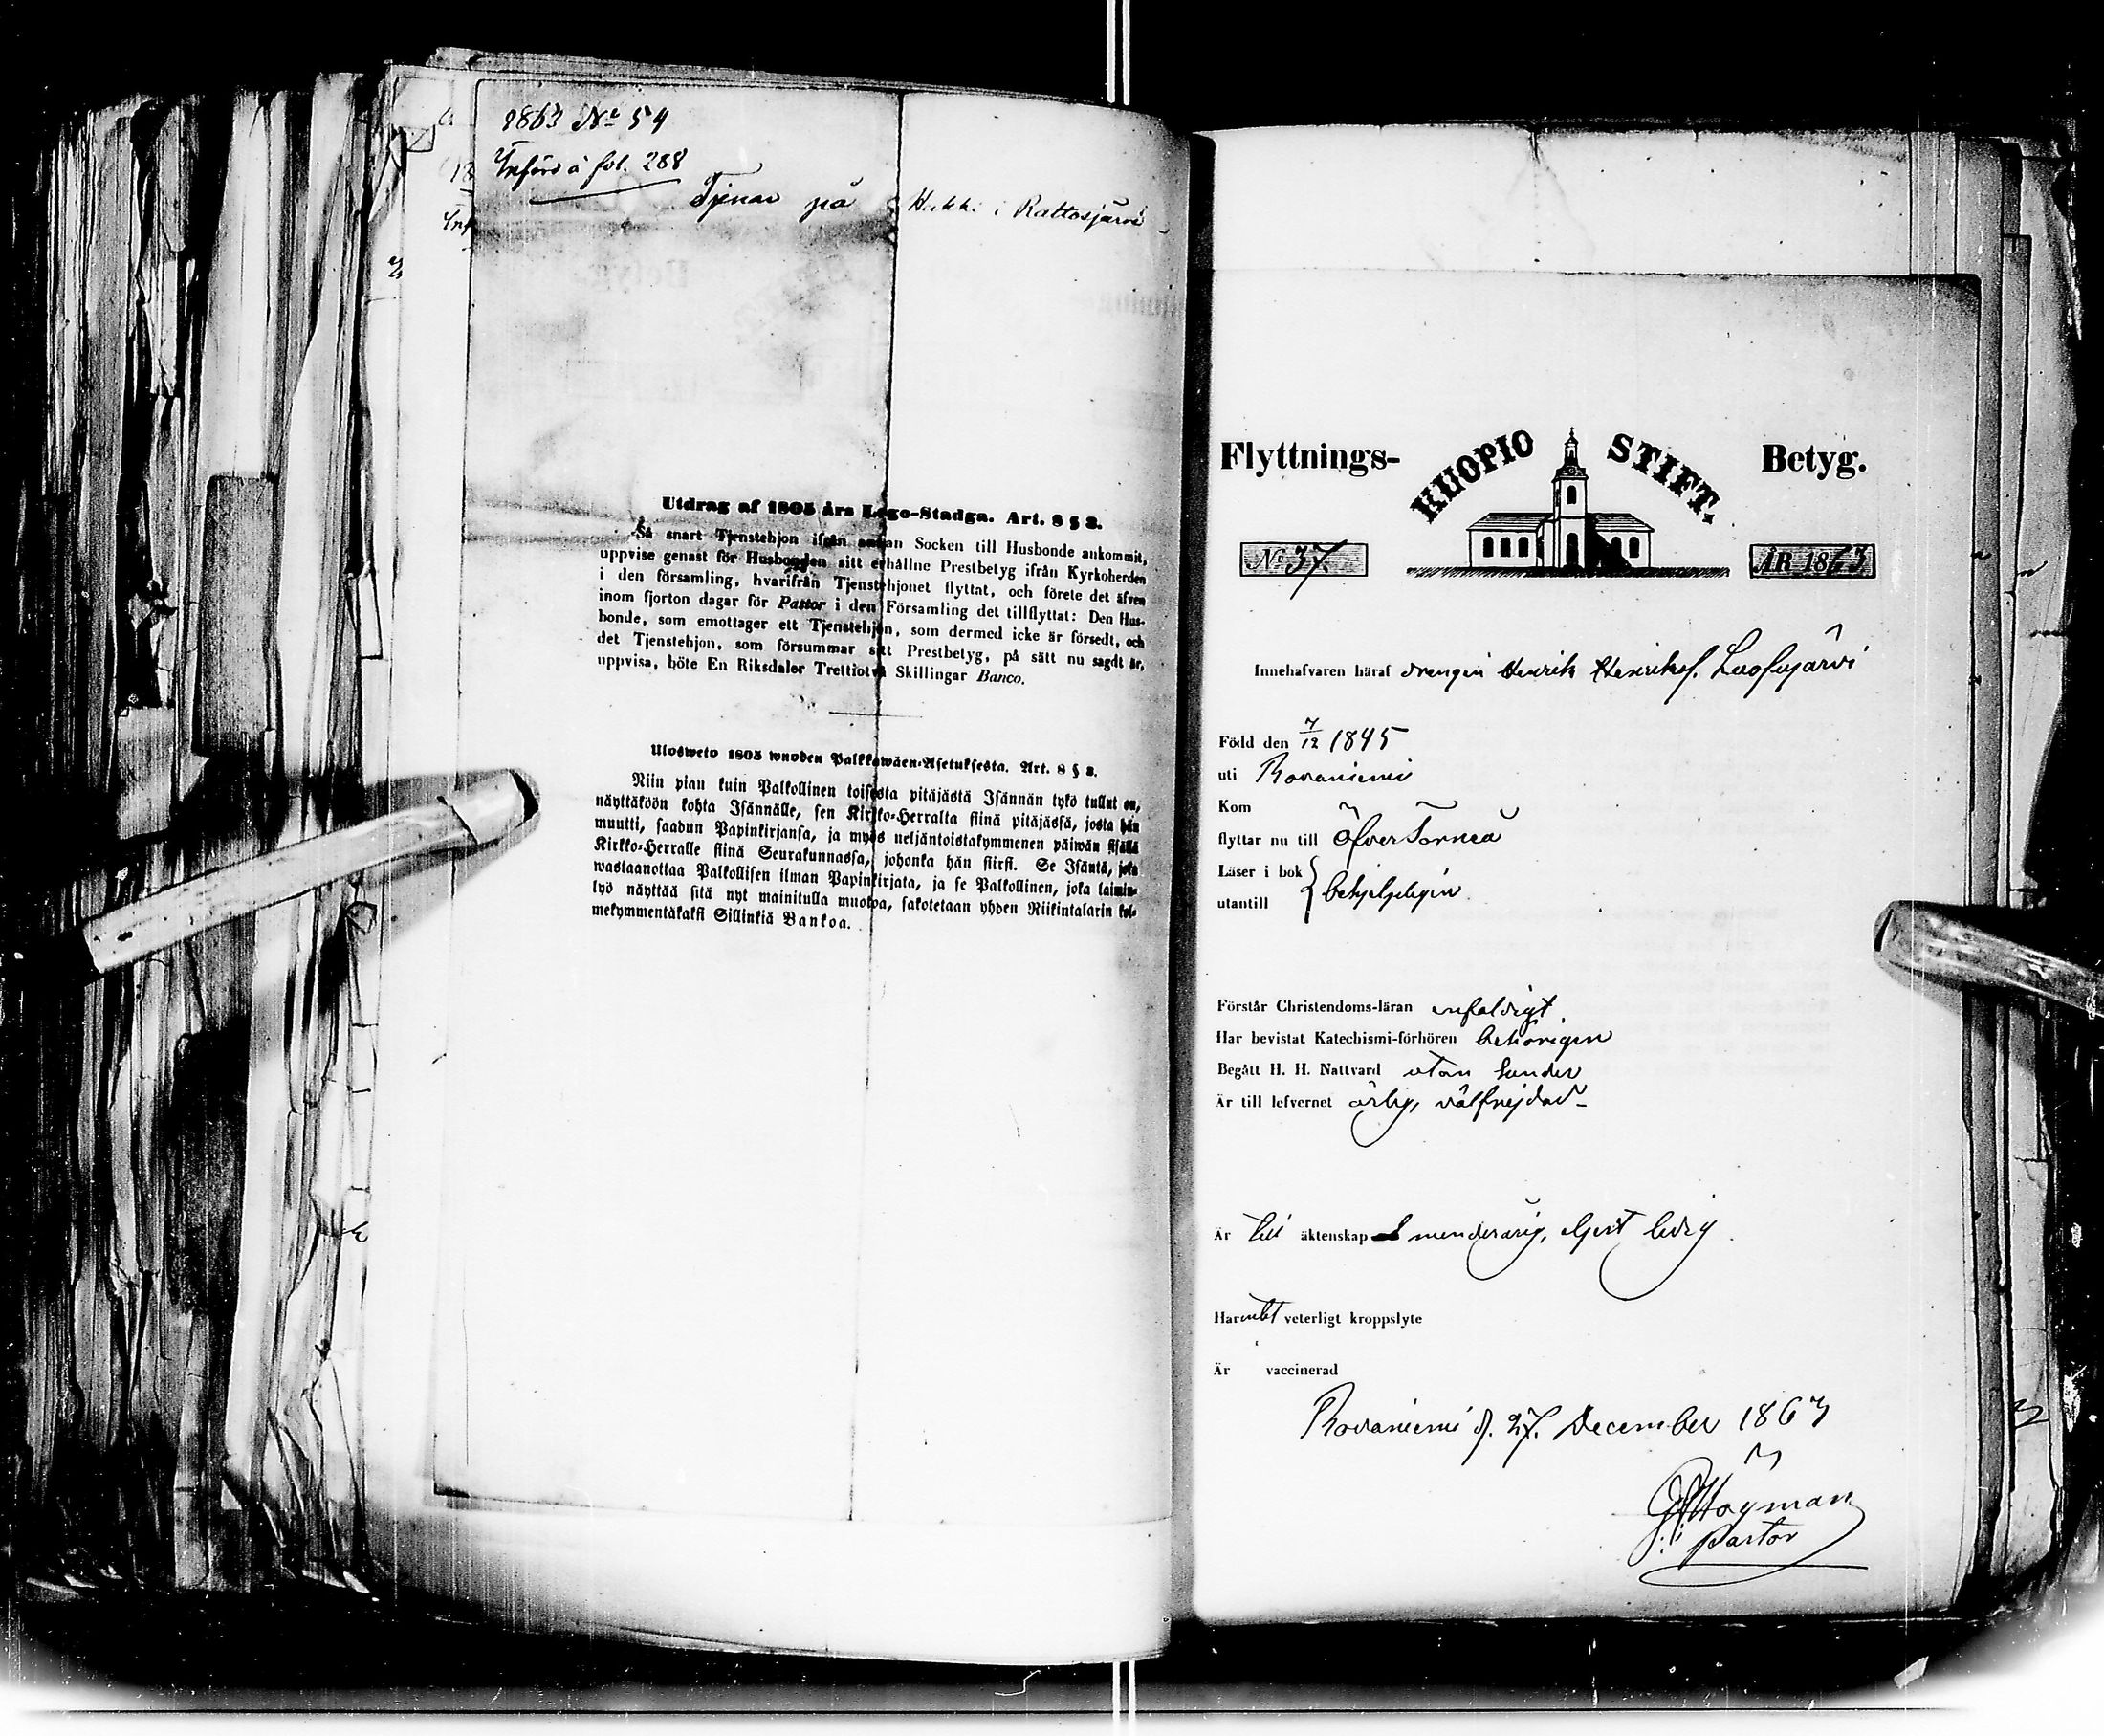 1863 No 54
Införd å fol. 288
Tjenar på Hukki i Rattosjärvi
Utdrag af 1805 års Lego-Stadga. Art. 8 § 3.
Så snart Tjenstehjon ifrån annan Socken till Husbonde ankommit,
uppvise genast för Husbonden sitt erhållne Prestbetyg ifrån Kyrkoherden
i den församling, hvarifrån Tjenstehjonet flyttat, och förete det äfven
inom fjorton dagar för Pastor i den Församling det tillflyttat: Den Hus-
bonde, som emottager ett Tjenstehjon, som dermed icke är försedt, och
det Tjenstehjon, som försummar sitt Prestbetyg, på sätt nu sagdt är,
uppvisa, böte En Riksdaler Trettiotvå Skillingar Banco.
Ulosweto 1805 wuoden Palkkawäen-Asetuksesta. Art. 8 § 3.
Niin pian kuin Palkollinen toisesta pitäjästä Isännän tykö tullut on,
näyttäköön kohta Isännälle, sen Kirkko-Herralta siinä pitäjässä, josta hän
muutti, saadun Papinkirjansa, ja myös neljäntoistakymmenen päiwän sisällä
Kirkko-Herralle siinä Seurakunnassa, johonka hän siirsi. Se Isäntä, joka
wastaanottaa Palkollisen ilman Papinkirjata, ja se Palkollinen, joka laimin-
lyö näyttää sitä nyt mainitulla muotoa, sakotetaan yhden Riikintalarin kol-
mekymmentäkaksi Sillinkiä Bankoa.
Flyttnings- KUOPIO STIFT. Betyg.
No 37. ÅR 1863
Innehafvaren häraf drengen Henrik Henriksf.
Född den 7/12 1845
uti Rovaniemi
Kom
flyttar nu till Öfver Torneå
Läser i bok
utantill } behjelpligen
Förstår Christendoms-läran enfaldigt
Har bevistat Katechismi-förhören behörigen
Begått H. H. Nattvard utan hinder
Är till lefvernet ärlig, välfrejdad
Är till äktenskap minderårig, eljest ledig
Har intet veterligt kroppslyte
Är vaccinerad
Rovaniemi d. 27. December 1863
Högman
Pastor